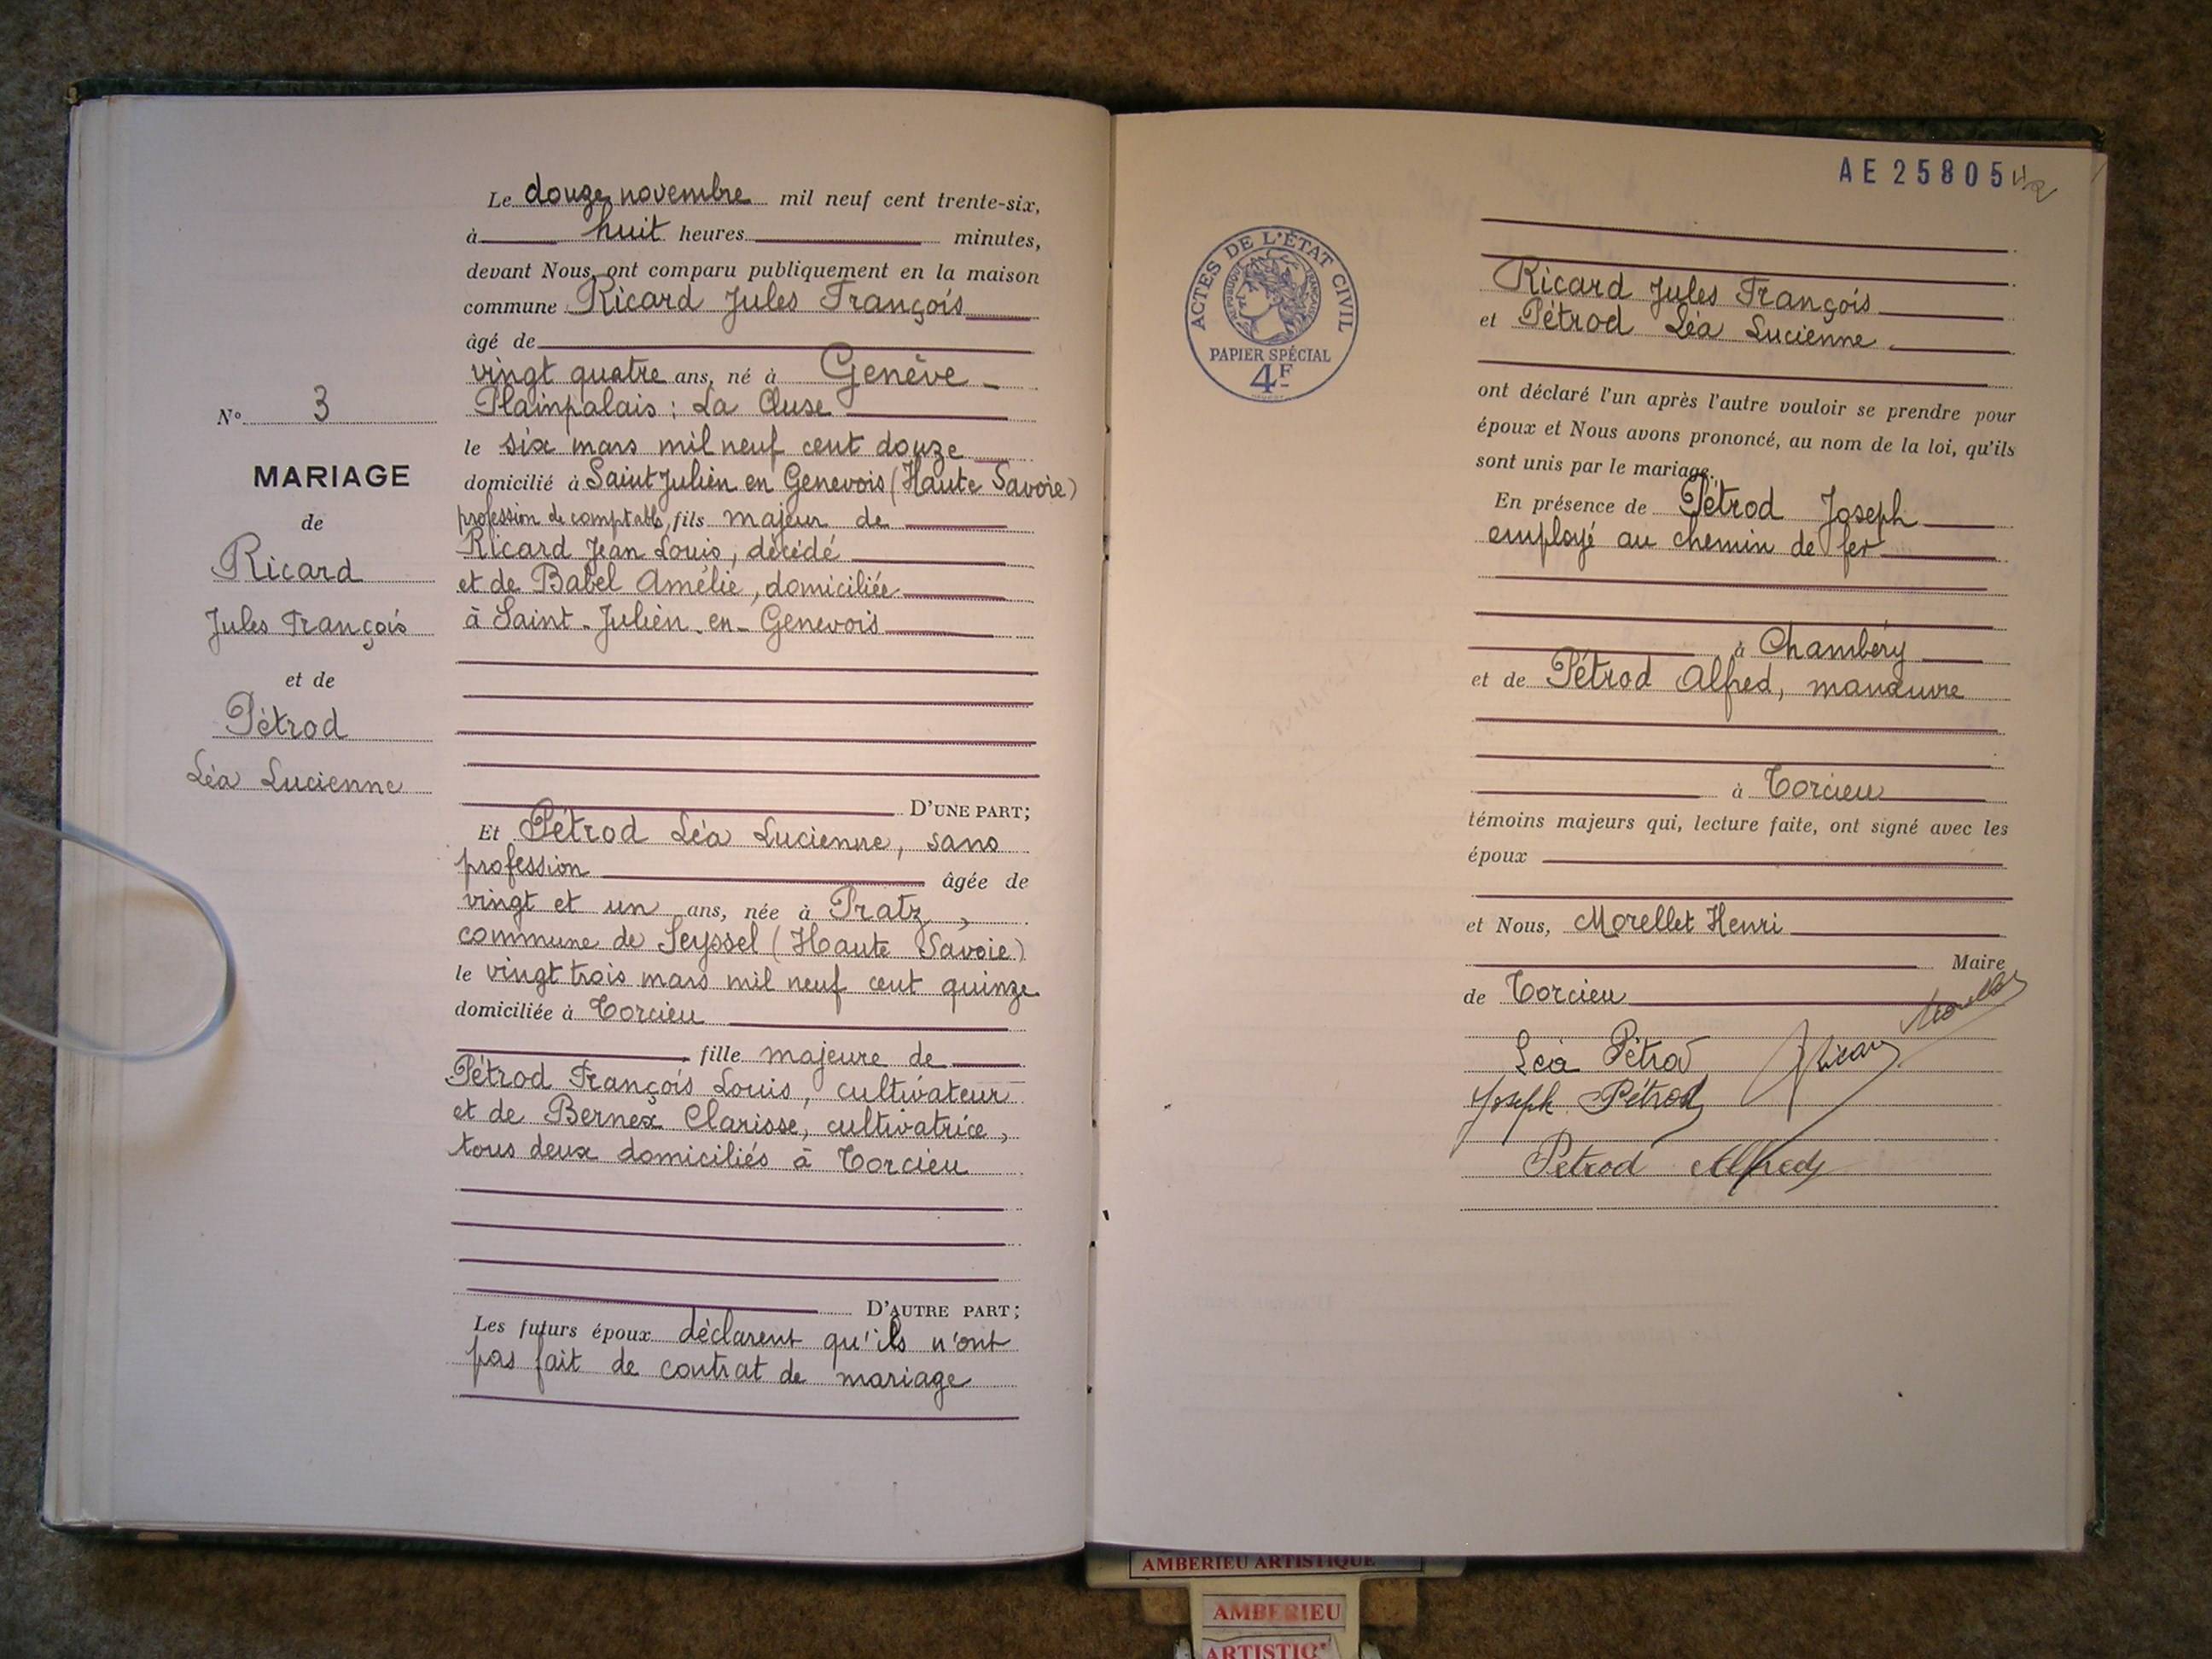 Le douze novembre mil neuf cent trente-six,
à huit heures minutes,
devant Nous, ont comparu publiquement en la maison
commune Ricard Jules François
âgé de
vingt quatre ans, né à Genève -
Plainpalais : La Cluse
le six mars mil neuf cent douze
domicilié à Saint Julien en Genevois (Haute Savoie)
profession de comptable, fils majeur de
Ricard Jean Louis, décédé
et de Babel Amélie, domiciliée
à Saint-Julien-en-Genevois
D'UNE PART;
Et Pétrod Léa Lucienne, sans
profession âgée de
vingt et un ans, née à Pratz,
commune de Seyssel (Haute Savoie)
le vingt trois mars mil neuf cent quinze
domiciliée à Torcieu
fille majeure de
Pétrod François Louis, cultivateur
et de Bernex Clarisse, cultivatrice,
tous deux domiciliés à Torcieu
D'AUTRE PART;
Les futurs époux déclarent qu'ils n'ont
pas fait de contrat de mariage
No 3
MARIAGE
de
Ricard
Jules François
et de
Pétrod
Léa Lucienne
AE 25805
ACTES DE L'ÉTAT CIVIL
RÉPUBLIQUE FRANÇAISE
PAPIER SPÉCIAL
4F
Ricard Jules François
et Pétrod Léa Lucienne
ont déclaré l'un après l'autre vouloir se prendre pour
époux et Nous avons prononcé, au nom de la loi, qu'ils
sont unis par le mariage.
En présence de Pétrod Joseph
employé au chemin de fer
à Chambéry
et de Pétrod Alfred, manœuvre
à Torcieu
témoins majeurs qui, lecture faite, ont signé avec les
époux
et Nous, Morellet Henri
Maire
de Torcieu
Léa Pétrod
Joseph Pétrod
Petrod Alfred
AMBERIEU ARTISTIQUE
AMBERIEU